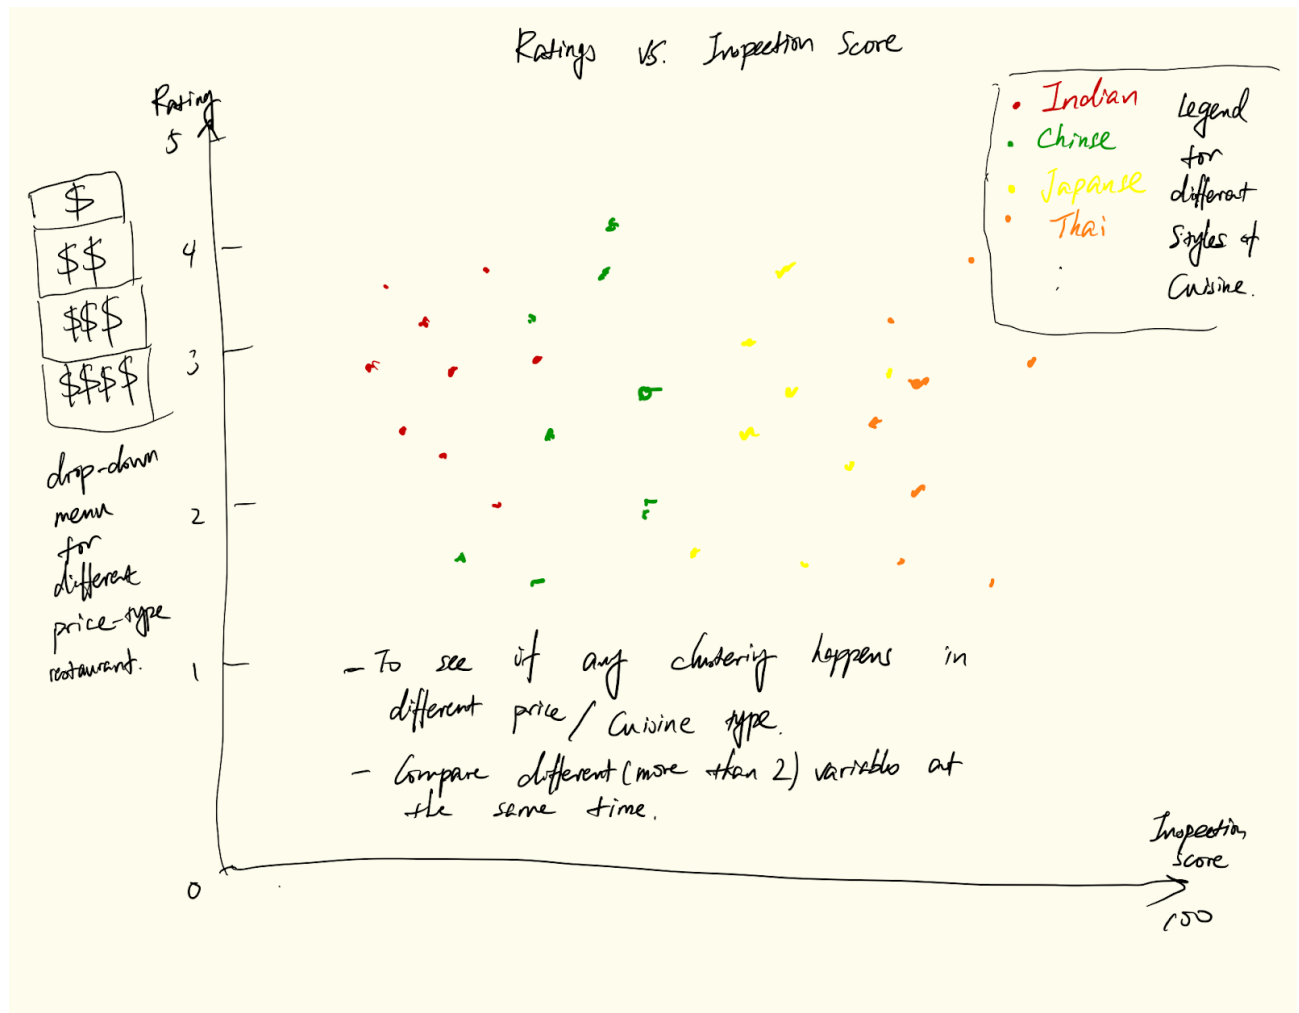 Ratings vs. Inspection Score
Rating
5
4
3
2
1
0
$
$$
$$$
$$$$
drop-down
menu
for
different
price-type
restaurant.
Indian
Chinse
Japanse
Thai
Legend
for
different
Styles of
Cuisine.
- To see if any clustering happens in
different price / Cuisine type.
- Compare different (more than 2) variables at
the same time.
Inspection
Score
100